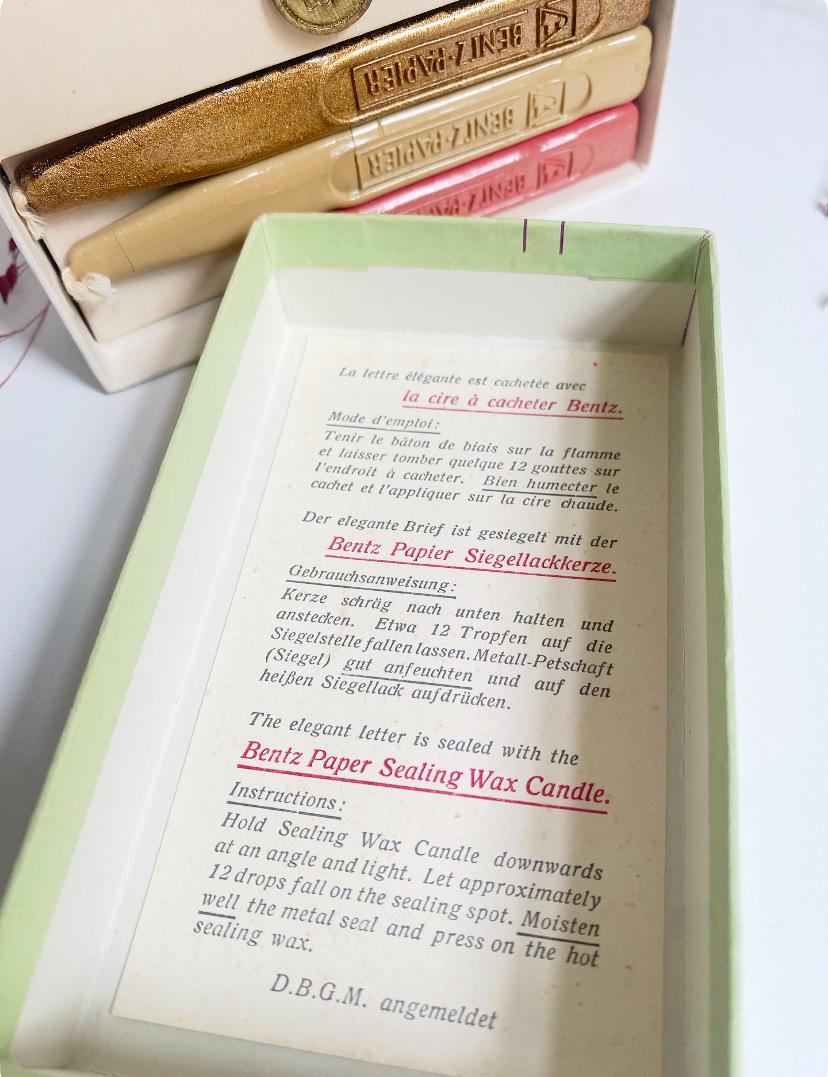 BENTZ-PAPIER
BENTZ-PAPIER
BENTZ-PA
La lettre élégante est cachetée avec
la cire à cacheter Bentz.
Mode d'emploi:
Tenir le bâton de biais sur la flamme
et laisser tomber quelque 12 gouttes sur
l'endroit à cacheter. Bien humecter le
cachet et l'appliquer sur la cire chaude.
Der elegante Brief ist gesiegelt mit der
Bentz Papier Siegellackkerze.
Gebrauchsanweisung:
Kerze schräg nach unten halten und
anstecken. Etwa 12 Tropfen auf die
Siegelstelle fallen lassen. Metall-Petschaft
(Siegel) gut anfeuchten und auf den
heißen Siegellack aufdrücken.
The elegant letter is sealed with the
Bentz Paper Sealing Wax Candle.
Instructions:
Hold Sealing Wax Candle downwards
at an angle and light. Let approximately
12 drops fall on the sealing spot. Moisten
well the metal seal and press on the hot
sealing wax.
D.B.G.M. angemeldet